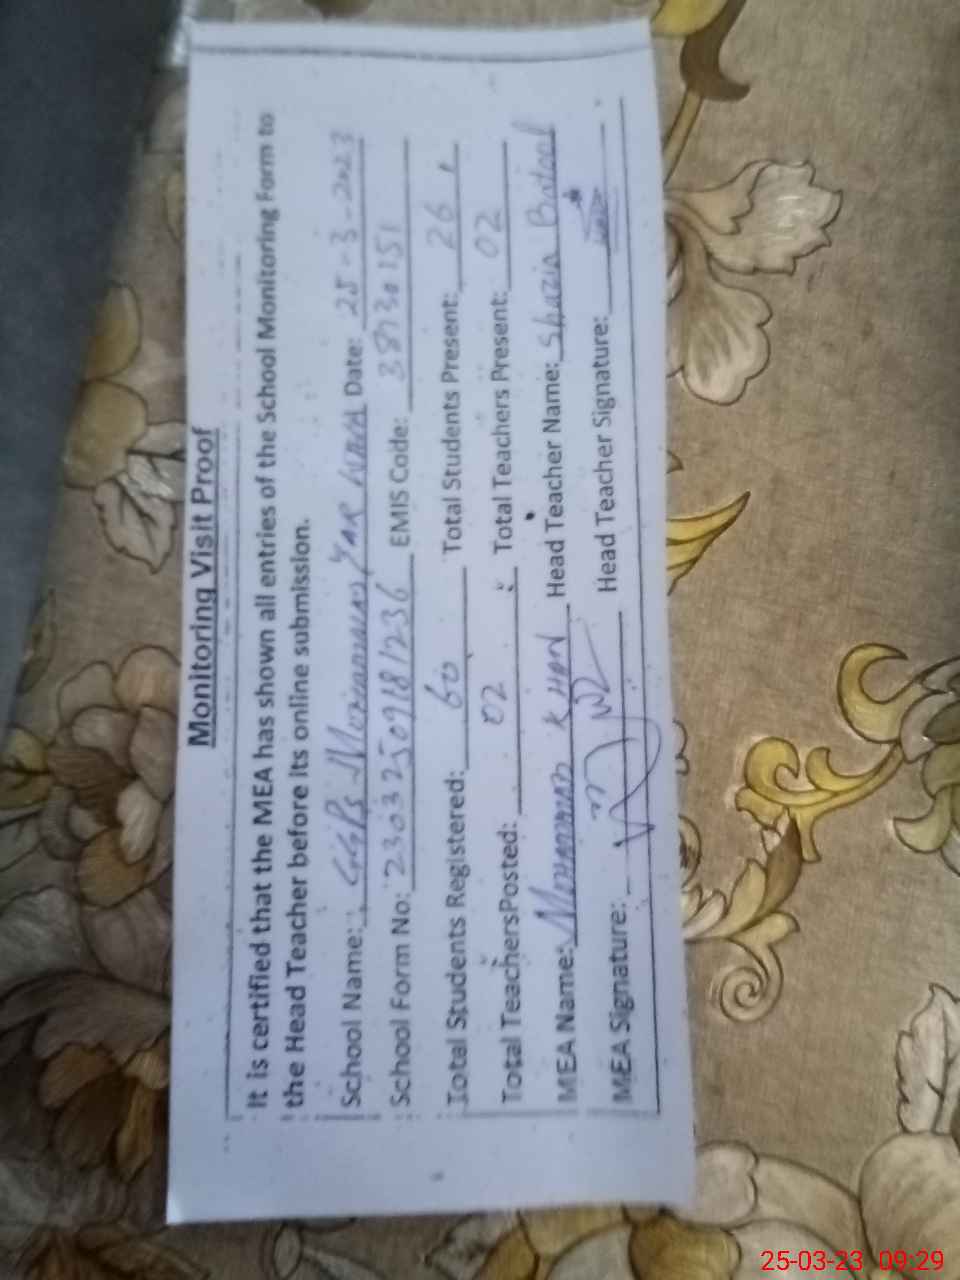 Monitoring Visit Proof
It is certified that the MEA has shown all entries of the School Monitoring Form to
the Head Teacher before its online submission.
School Name: GGPS Mohammad Yar Wala Date: 25-3-2023
School Form No: 230325098/236 EMIS Code: 38730151
Total Students Registered: 60 Total Students Present: 26
Total TeachersPosted: 02 Total Teachers Present: 02
MEA Name: Mohammad Khan Head Teacher Name: Shazia Batool
MEA Signature: Head Teacher Signature:
25-03-23 09:29